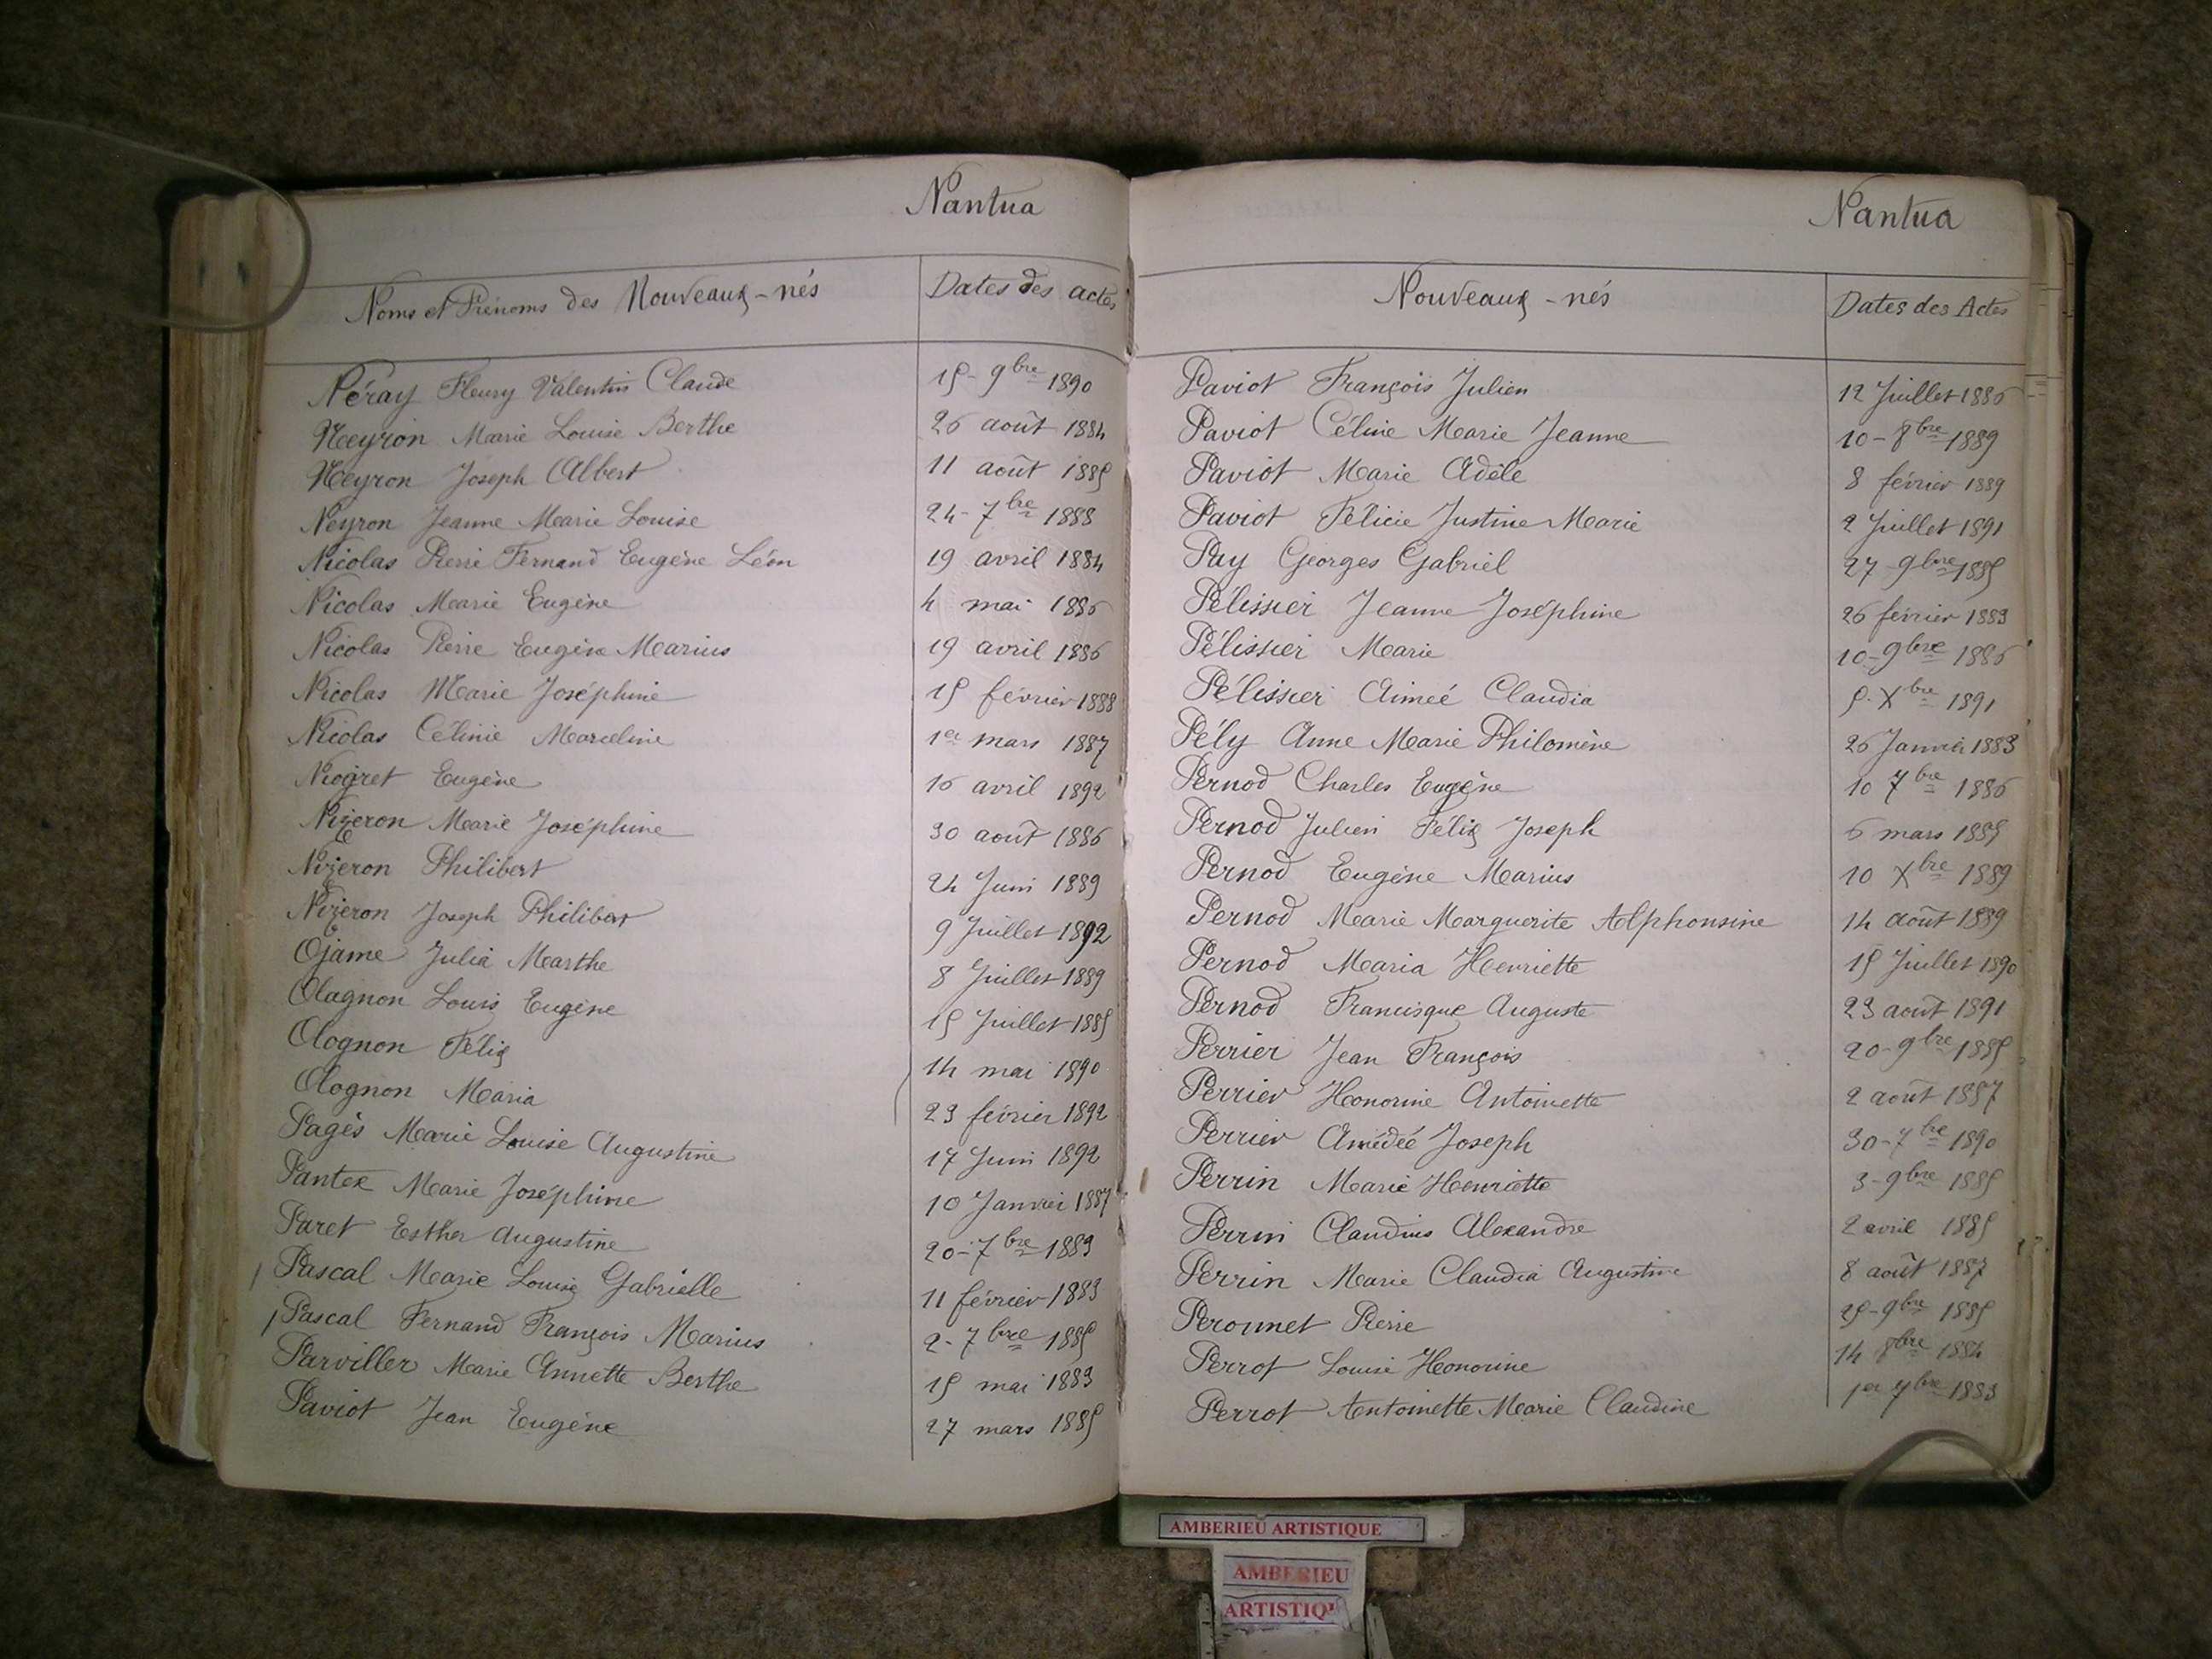 Nantua
Noms et Prénoms des Nouveaux-nés Dates des actes
Néray Fleury Valentin Claude 15-9bre 1890
Neyron Marie Louise Berthe 26 août 1884
Neyron Joseph Albert 11 août 1885
Neyron Jeanne Marie Louise 24-7bre 1888
Nicolas Pierre Fernand Eugène Léon 19 avril 1884
Nicolas Marie Eugène 4 mai 1886
Nicolas Pierre Eugène Marius 19 avril 1886
Nicolas Marie Joséphine 15 février 1888
Nicolas Célinie Marceline 1er mars 1887
Niogret Eugène 16 avril 1892
Nizeron Marie Joséphine 30 août 1886
Nizeron Philibert 24 Juin 1889
Nizeron Joseph Philibert 9 Juillet 1892
Ojame Julia Marthe 8 Juillet 1889
Olagnon Louis Eugène 15 Juillet 1885
Olognon Félix 14 mai 1890
Olognon Maria 23 février 1892
Pagès Marie Louise Augustine 17 Juin 1892
Pantex Marie Joséphine 10 Janvier 1887
Paret Esther Augustine 20-7bre 1883
Pascal Marie Louise Gabrielle 11 février 1883
Pascal Fernand François Marius 2-7bre 1885
Parviller Marie Annette Berthe 15 mai 1883
Paviot Jean Eugène 27 mars 1885
Nantua
Nouveaux-nés Dates des Actes
Paviot François Julien 12 Juillet 1886
Paviot Céline Marie Jeanne 10-8bre 1889
Paviot Marie Adèle 8 février 1889
Paviot Félicie Justine Marie 2 Juillet 1891
Pay Georges Gabriel 27-9bre 1885
Pélissier Jeanne Joséphine 26 février 1883
Pélissier Marie 10-9bre 1886
Pélissier Aimeé Claudia 5-Xbre 1891
Pély Anne Marie Philomène 26 Janvier 1883
Pernod Charles Eugène 10 7bre 1886
Pernod Julien Félix Joseph 6 mars 1885
Pernod Eugène Marius 10 Xbre 1889
Pernod Marie Marguerite Alphonsine 14 août 1889
Pernod Maria Henriette 15 Juillet 1890
Pernod Francisque Auguste 23 août 1891
Perrier Jean François 20-9bre 1885
Perrier Honorine Antoinette 2 août 1887
Perrier Amédée Joseph 30-7bre 1890
Perrin Marie Henriette 3-9bre 1885
Perrin Claudius Alexandre 2 avril 1885
Perrin Marie Claudia Augustine 8 août 1887
Perounet Pierre 25-9bre 1885
Perrot Louise Honorine 14 8bre 1884
Perrot Antoinette Marie Claudine 1er 7bre 1883
AMBERIEU ARTISTIQUE
AMBERIEU
ARTISTIQU